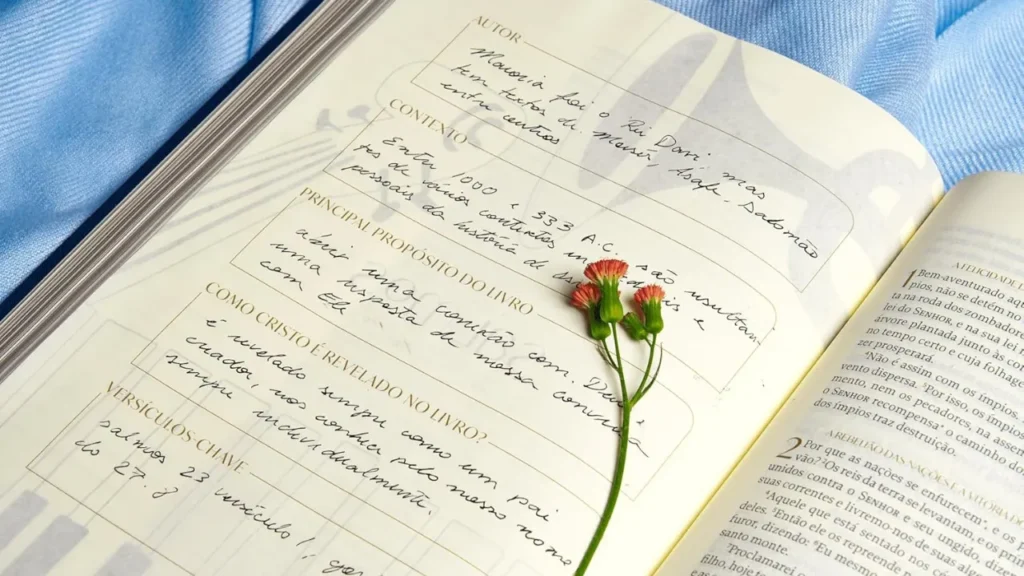 AUTOR
Maioria foi o Rei Davi, mas
tem textos de Moisés, Asafe, Salomão
entre outros
CONTEXTO
Entre 1000 e 333 A.C. são
pessoais da história de
PRINCIPAL PROPÓSITO DO LIVRO
abrir uma conexão com
uma resposta de nossa conversa
com Ele
COMO CRISTO É REVELADO NO LIVRO?
é revelado sempre como um pai
criador, nos conduz pelo nosso nome
sempre individualmente.
VERSÍCULOS-CHAVE
salmos 23 versículo 1
do 27.
A FELICIDADE
1 Bem-aventurado aqu
pios, não se detém no
ta na roda dos zombador
lei do SENHOR, e na sua lei
árvore plantada junto às cor
no tempo certo e cuja folhage
zer prosperará.
Não é assim com os ímpios,
vento dispersa. Por isso, os ímpios
mento, nem os pecadores, na assem
o SENHOR recompensa o caminho do
dos ímpios traz destruição.
A REBELIÃO DAS NAÇÕES E A
2 Por que as nações se enfurecem, e os p
vão? Os reis da terra se levantam, e os pr
unidos contra o SENHOR e seu ungido, dizen
suas correntes e livremo-nos de suas alge
Aquele que está sentado nos cé
Então ele os repreende
ror, dizendo: "Eu mesmo
santo monte.
Proclamarei o
filho, hoje